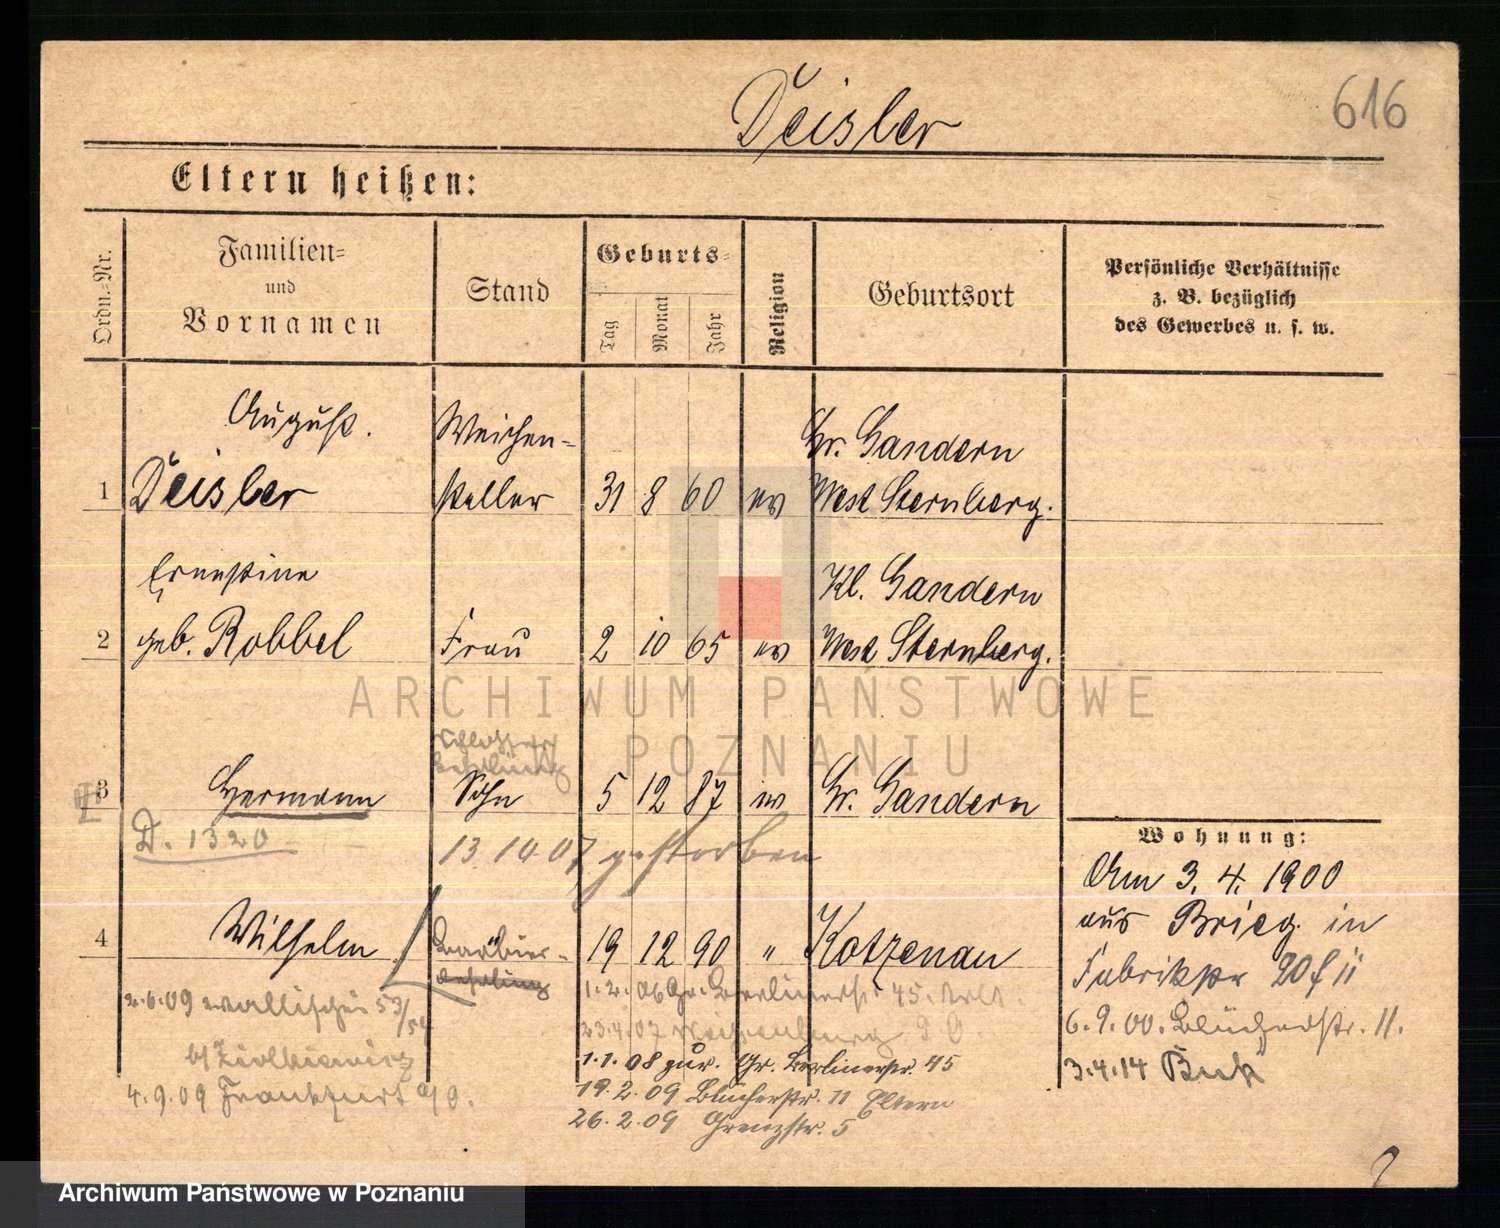 Deisler
616
Eltern heißen:
Ordn.-Nr.
Familien-
und
Vornamen
Stand
Geburts-
Tag
Monat
Jahr
Religion
Geburtsort
Persönliche Verhältnisse
z. B. bezüglich
des Gewerbes u. s. w.
August. Weichen- Gr. Gandern
1 Deisler steller 31 8 60 ev West Sternberg.
Ernestine Kl. Gandern
2 geb. Robbel Frau 2 10 65 ev West Sternberg.
ARCHIWUM PAŃSTWOWE
W POZNANIU
Schlosser
3 Hermann Sohn 5 12 87 ev Gr. Gandern
D. 1320
13 10 07 gestorben
Wohnung:
Am 3. 4. 1900
aus Brieg in
Fabrikstr 20
6.9.00. Blücherstr. 11.
3.4.14 Buk
4 Wilhelm Barbier- 19 12 90 " Kotzenau
1.2.06 Gr. Berlinerstr 45.
23.4.07
1.1.08 zur. Gr. Berlinerstr. 45
19.2.09 Blücherstr. 11 Eltern
26.2.09 Grenzstr. 5
2.6.09 Wallischei 53/54
b/Ziolkiewicz
4.9.09 Frankfurt a/O.
Archiwum Państwowe w Poznaniu